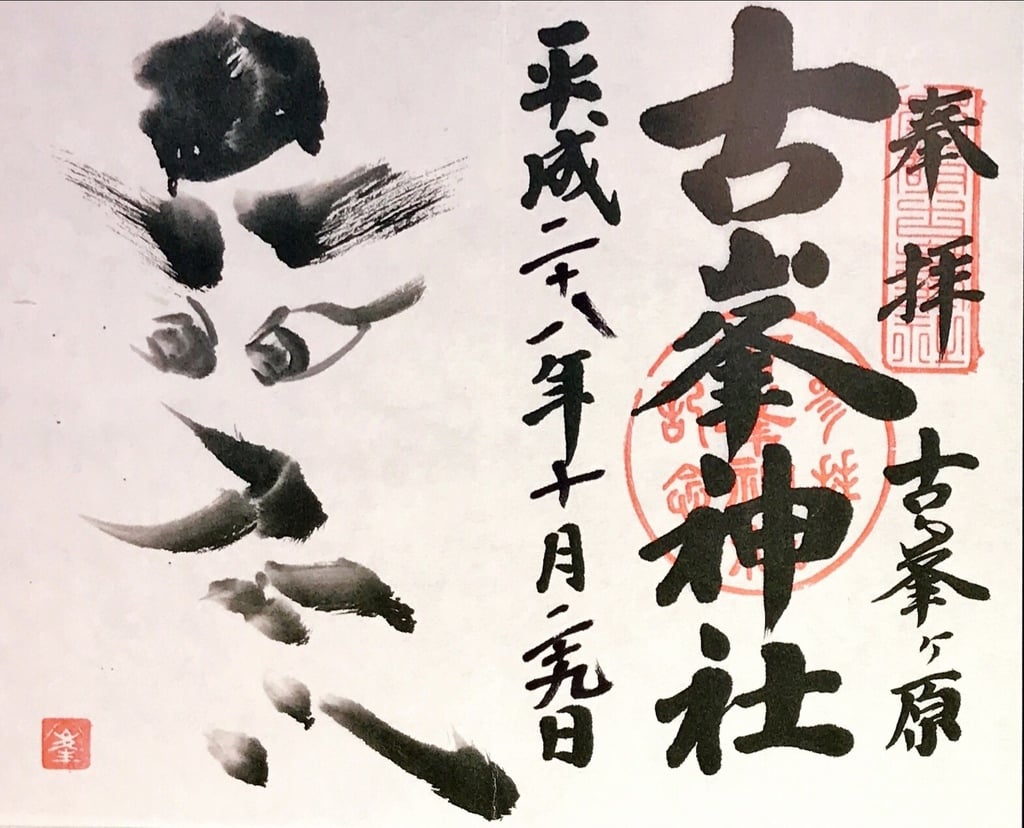 奉拝
古峯ヶ原
古峯神社
平成二十八年十月二十九日
峯